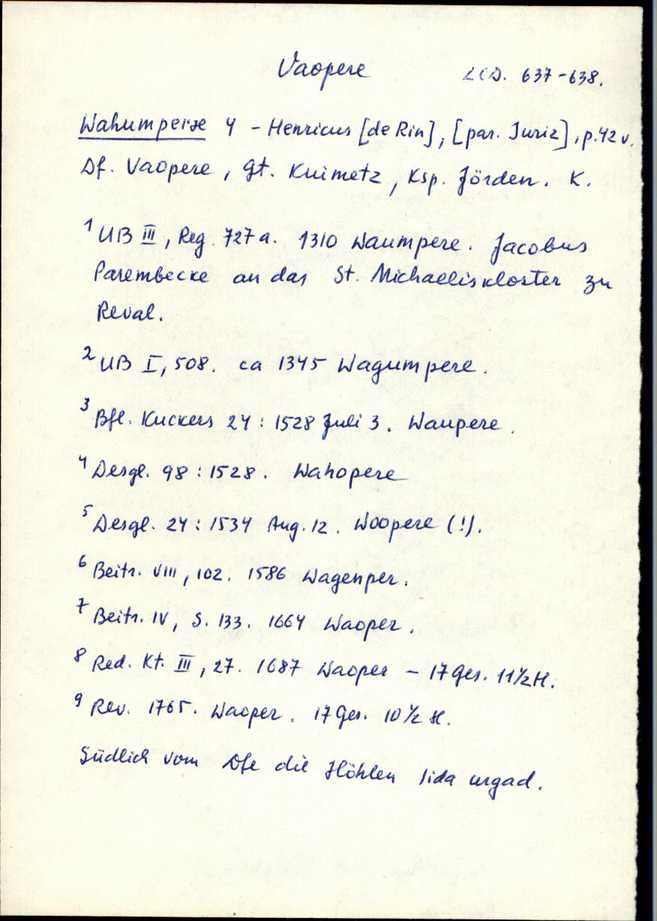 Vaopere LCD. 637-638.
Wahumperæ 4 - Henricus [de Rin], [par. Juriz], p.42 v.
Df. Vaopere, Gt. Kuimetz, Ksp. Jörden. K.
1 UB III, Reg. 727a. 1310 Waumpere. Jacobus
Parembecke an das St. Michaeliskloster zu
Reval.
2 UB I, 508. ca 1345 Wagumpere.
3 Bfl. Kuckers 24: 1528 Juli 3. Waupere.
4 Desgl. 98: 1528. Wahopere
5 Desgl. 24: 1534 Aug. 12. Woopere (!).
6 Beitr. VIII, 102. 1586 Wagenper.
7 Beitr. IV, S. 133. 1664 Waoper.
8 Red. Kt. III, 27. 1687 Waoper - 17 Ges. 11 1/2 H.
9 Rev. 1765. Waoper. 17 Ges. 10 1/2 H.
Südlich vom Dfe die Höhlen Iida urgad.